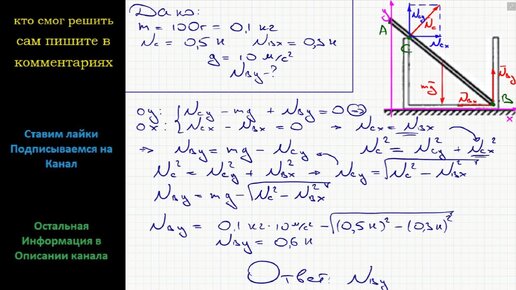 кто смог решить
сам пишите в
комментариях
Ставим лайки
Подписываемся на
Канал
Остальная
Информация в
Описании канала
Дано:
m = 100г = 0,1 кг
Nc = 0,5 н   NBx = 0,3 н
g = 10 м/с²
NBy - ?
y
A
C
Ncy
Nc
Ncx
mg
NBx
NBy
B
x
oy: { Ncy - mg + NBy = 0 ⇒
ox: { Ncx - NBx = 0 → Ncx = NBx
⇒ NBy = mg - Ncy   Nc² = Ncy² + Ncx²
Nc² = Ncy² + NBx² → Ncy = √(Nc² - NBx²)
NBy = mg - √(Nc² - NBx²)
NBy = 0,1 кг·10 м/с² - √((0,5 н)² - (0,3 н)²)
NBy = 0,6 н
Ответ: NBy